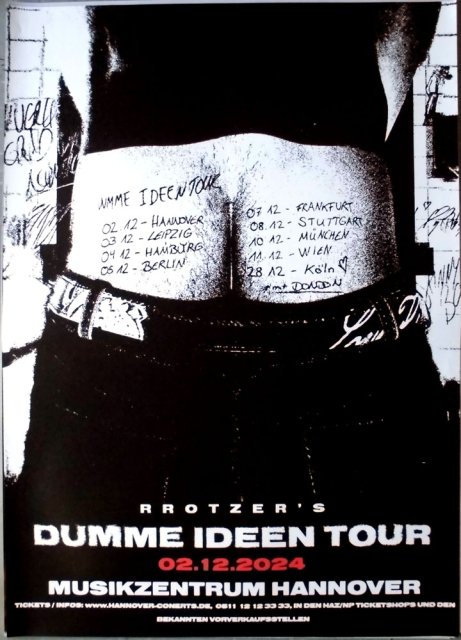 DUMME IDEEN TOUR
02 12 - HANNOVER
03 12 - LEIPZIG
04 12 - HAMBURG
05 12 - BERLIN
07 12 - FRANKFURT
08 12 - STUTTGART
10 12 - MÜNCHEN
11 12 - WIEN
28 12 - Köln♡
RROTZER'S
DUMME IDEEN TOUR
02.12.2024
MUSIKZENTRUM HANNOVER
TICKETS / INFOS: WWW.HANNOVER-CONERTS.DE, 0511 12 12 33 33, IN DEN HAZ/NP TICKETSHOPS UND DEN
BEKANNTEN VORVERKAUFSSTELLEN